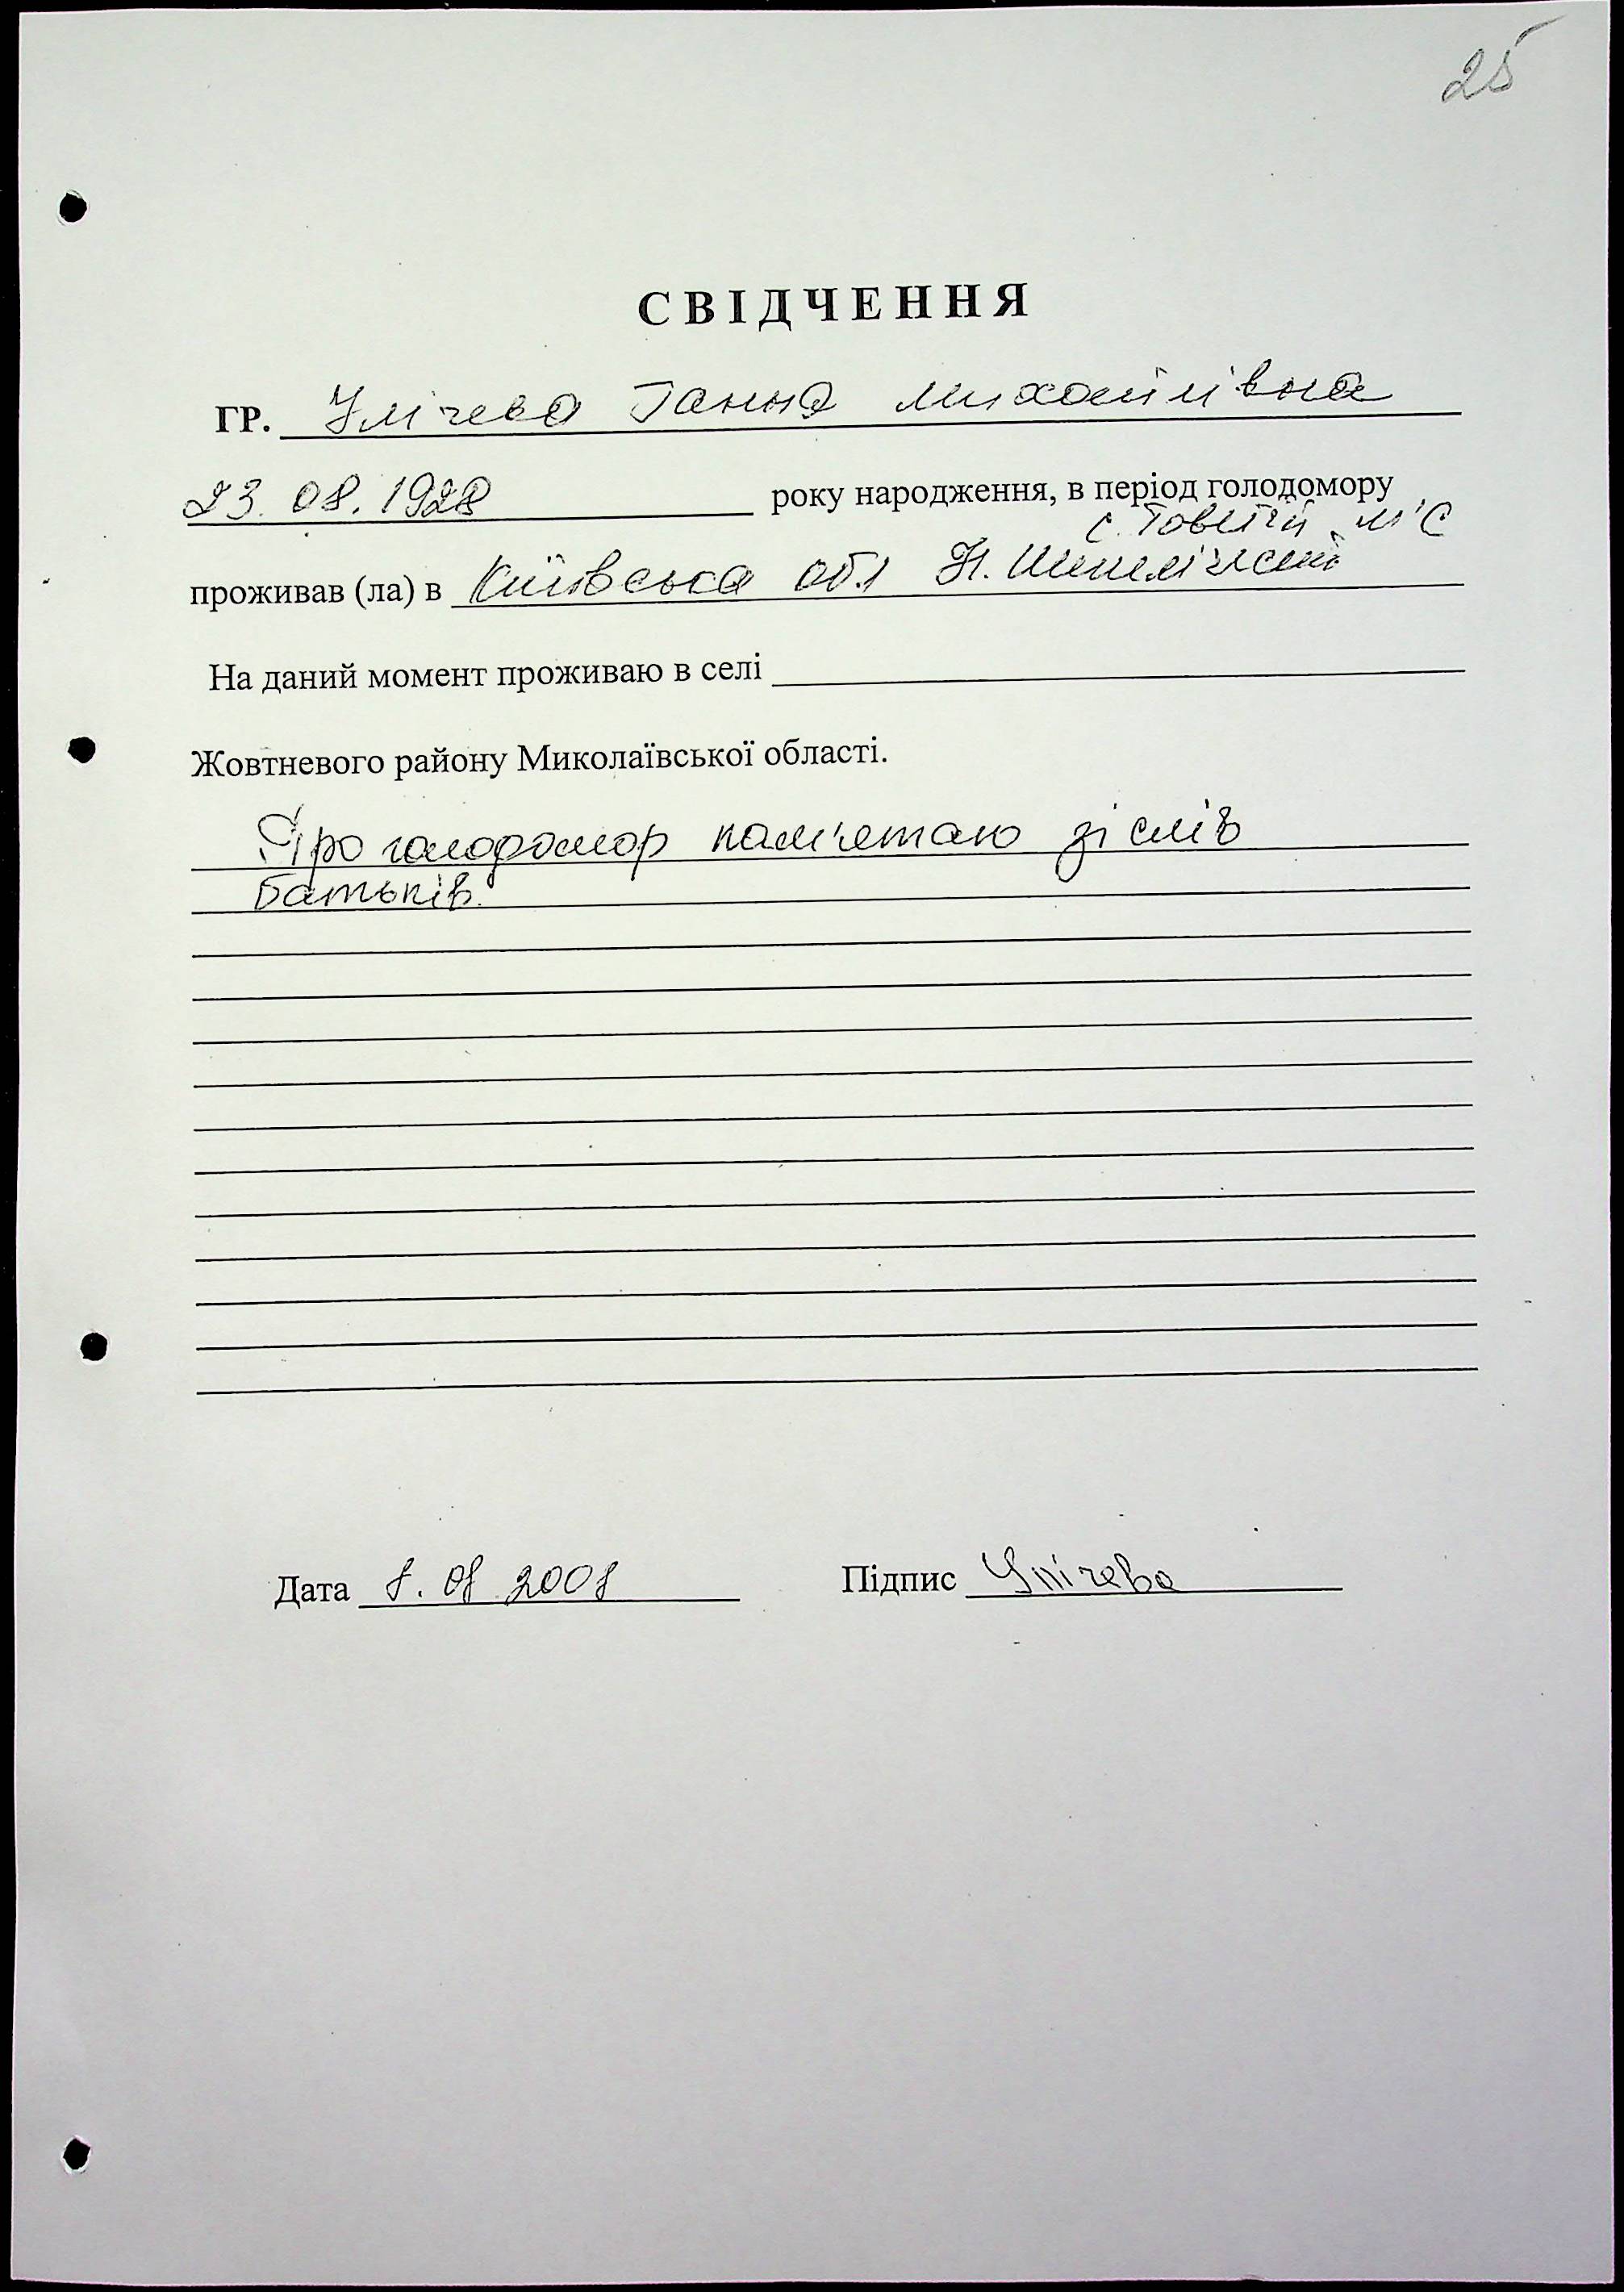 25
СВІДЧЕННЯ
ГР. Улічева Ганна Михайлівна
23.08.1928 року народження, в період голодомору
с.
проживав (ла) в Київська обл Н.
На даний момент проживаю в селі
Жовтневого району Миколаївської області.
Про голодомор пам'ятаю зі слів
батьків.
Дата 8.08 2008 Підпис Улічева